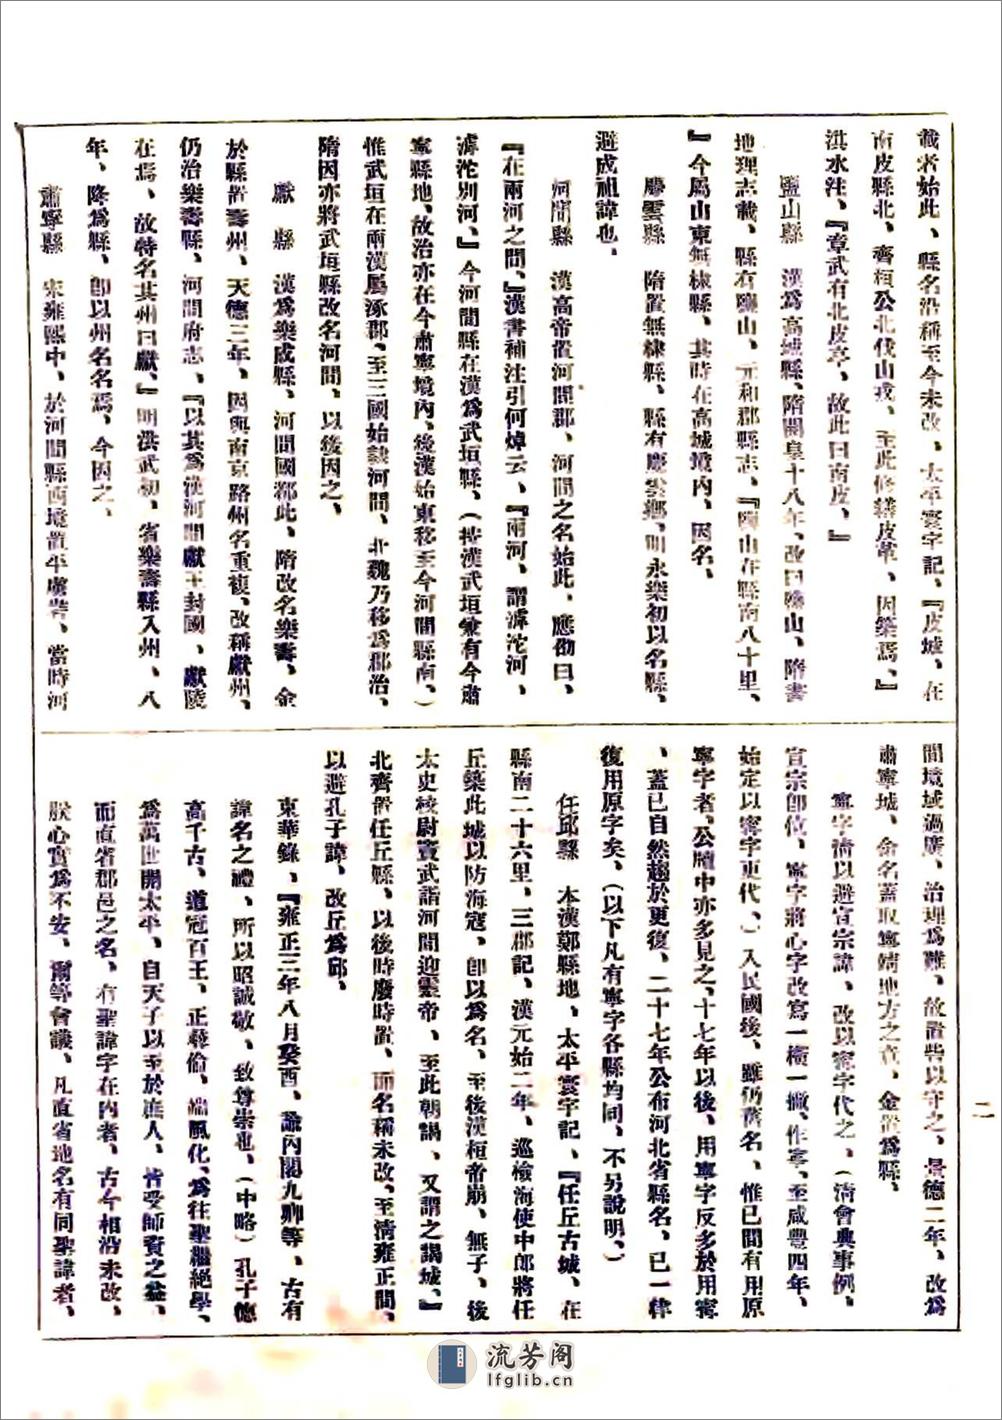 載者始此、縣名沿稱至今未改、太平寰宇記、『皮城、在
南皮縣北、齊桓公北伐山戎、至此修繕皮革、因築焉、』
洪水注、『章武有北皮亭、故此曰南皮、』
鹽山縣　漢爲高城縣、隋開皇十八年、改曰鹽山、隋書
地理志載、縣有鹽山、元和郡縣志、『鹽山在縣南八十里、
』今屬山東無棣縣、其時在高城境內、因名、
慶雲縣　隋置無棣縣、縣有慶雲鄉、明永樂初以名縣、
避成祖諱也、
河間縣　漢高帝置河間郡、河間之名始此、應劭曰、
『在兩河之間、』漢書補注引何焯云、『兩河、謂滹沱河、
滹沱別河、』今河間縣在漢爲武垣縣、(按漢武垣兼有今肅
寧縣地、故治亦在今肅寧境內、後漢始東移至今河間縣南、)
惟武垣在兩漢屬涿郡、至三國始隸河間、北魏乃移爲郡治、
隋因亦將武垣縣改名河間、以後因之、
獻　縣　漢爲樂成縣、河間國都此、隋改名樂壽、金
於縣置壽州、天德三年、因與南京路州名重複、改稱獻州、
仍治樂壽縣、河間府志、『以其爲漢河間獻王封國、獻陵
在焉、故特名其州曰獻、』明洪武初、省樂壽縣入州、八
年、降爲縣、卽以州名名焉、今因之、
肅寧縣　宋雍熙中、於河間縣西境置平虜砦、當時河
間境域過廣、治理爲難、故置砦以守之、景德二年、改爲
肅寧城、命名蓋取寧靖地方之意、金置爲縣、
寧字清以避宣宗諱、改以甯字代之、(清會典事例、
宣宗卽位、寧字將心字改寫一橫一撇、作寍、至咸豐四年、
始定以甯字更代、)入民國後、雖仍舊名、惟已間有用原
寧字者、公牘中亦多見之、十七年以後、用寧字反多於用甯
、蓋已自然趨於更復、二十七年公布河北省縣名、已一律
復用原字矣、(以下凡有寧字各縣均同、不另說明、)
任邱縣　本漢鄚縣地、太平寰宇記、『任丘古城、在
縣南二十六里、三郡記、漢元始二年、巡檢海使中郎將任
丘築此城以防海寇、卽以爲名、至後漢桓帝崩、無子、後
太史校尉竇武詣河間迎靈帝、至此朝謁、又謂之謁城、』
北齊置任丘縣、以後時廢時置、而名稱未改、至清雍正間、
以避孔子諱、改丘爲邱、
東華錄、『雍正三年八月癸酉、諭內閣九卿等、古有
諱名之禮、所以昭誠敬、致尊崇也、(中略)孔子德
高千古、道冠百王、正彝倫、端風化、爲往聖繼絕學、
爲萬世開太平、自天子以至於庶人、皆受師資之益、
而直省郡邑之名、有聖諱字在內者、古今相沿未改、
朕心實爲不安、爾等會議、凡直省地名有同聖諱者、
二
流芳阁
lfglib.cn